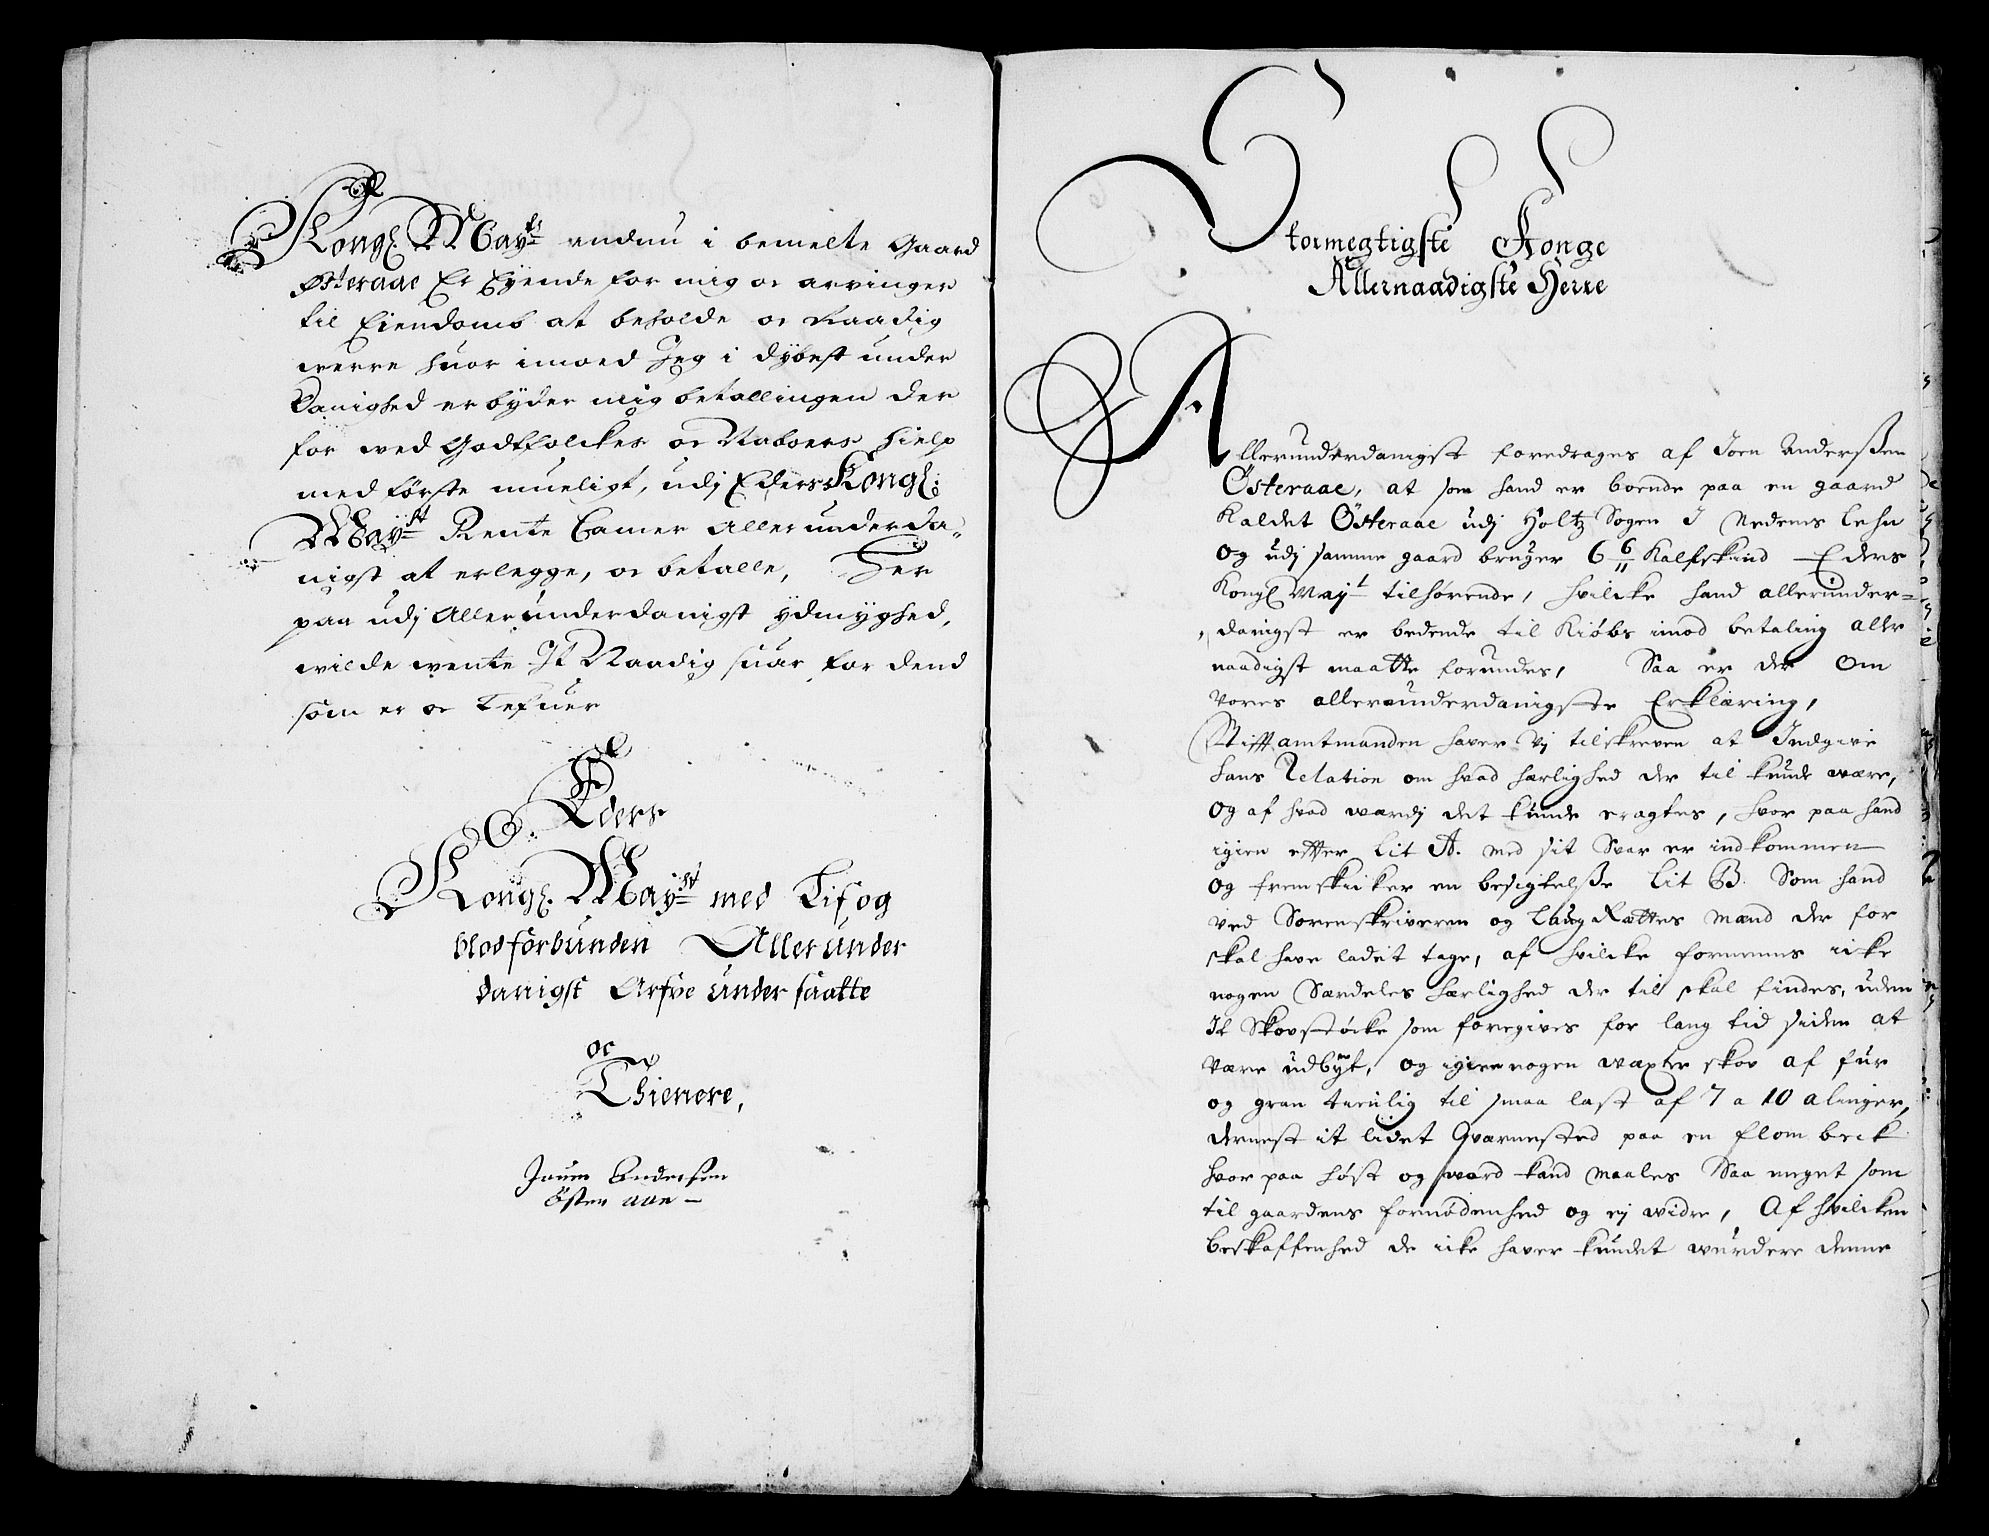 Kongl May:ts endnu i bemelte Gaard
Østeraae Er Eyende for mig oc arvinger
til Eiendomb at beholde oc Naadig
werre huor imoed Jeg i dybest under
Danighed erbyder mig betallingen der
for wed Godtfolckes oc Naboers hielp
med første mueligt, udj Eders Kongl:
May:st Rente Camer Allerunderda-
nigst at erlegge, oc betalle, Her
paa udj Allerunderdanigst ydmyghed,
wilde wente It Naadig suar for dend
som er oc lefuer
Eders
Kongl. May:st med Lif og
blod forbunden Allerunder
danigst Arfve undersaatte
oc
Thienere,
Jouen Andersen
Østeraae
Stormegtigste Konge
Allernaadigste Herre
Allerunderdanigst foredrages af Joen Anderssen
Østeraae, at som hand er boende paa en gaard
Kaldet Østeraae udj Holtz Sogen I Nedenes lehn
og udj samme gaard bruger 6 6/11 Kalfskind Eders
Kongl May:t tilhørende, hvilcke hand allerunder-
danigst er bedende til Kiøbs imod betaling aller
naadigst maatte forundes, Saa er der om
vores allerunderdanigste Erklæring,
Stifftamtmanden haver Vj tilskreven at Indgive
hans Relation om hvad herlighed der til kunde være,
og af hvad værdj det kunde eragtes, hvor paa hand
igien efter Lit A. med sit Svar er indkommen
og fremskicker en besigtelsse Lit B. Som hand
ved Sorenskriveren og LaugRættes mænd der for
skal have ladet tage, af hvilcke fornemmes icke
nogen Særdeles herlighed der til skal findes, uden
It Skovstøcke som foregives for lang tid siden at
være udbyt, og igien nogen vaxter skov af fur
og gran tienlig til smaa last af 7 a 10 alinger,
dernest it lidet Qværnested paa en flom beck
hvor paa høst og vaard kand maales Saa meget som
til gaardens fornødenhed og ej vidre, Af hvilcken
beskaffenhed de icke haver kundet vurdere denne